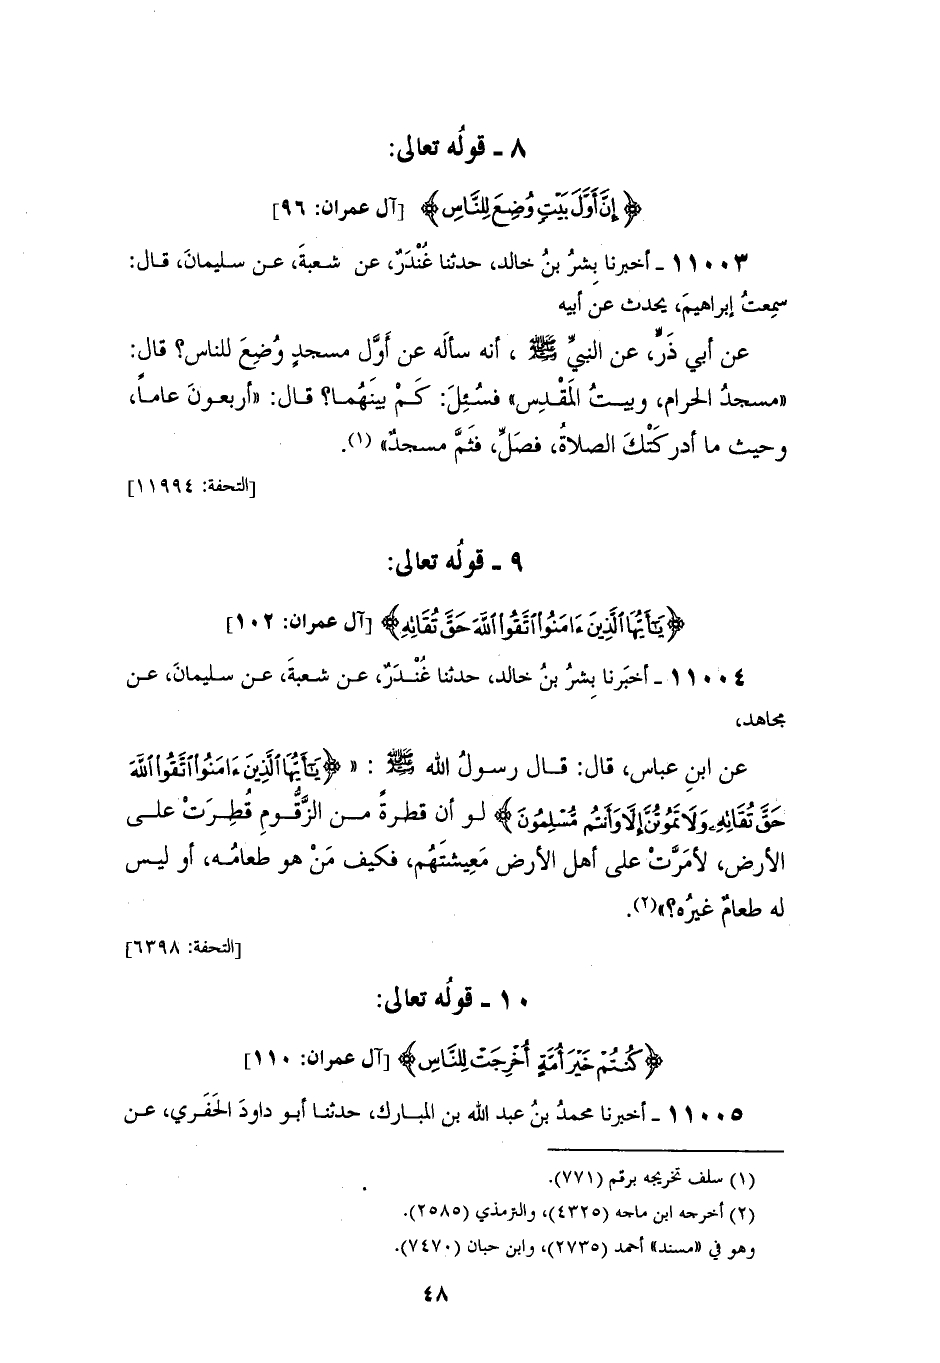 ٨ ـ قولُه تعالى:
﴿إِنَّ أَوَّلَ بَيْتٍ وُضِعَ لِلنَّاسِ﴾ [آل عمران: ٩٦]
١١٠٠٣ ـ أخبرنا بِشرُ بنُ خالد، حدثنا غُنْدَرٌ، عن شعبةَ، عـن سـليمانَ، قـال:
سمِعتُ إبراهيمَ، يحدث عن أبيه
عن أبي ذَرٍّ، عن النبيِّ ﷺ ، أنه سألَه عن أوَّل مسجدٍ وُضِعَ للناس؟ قال:
«مسجدُ الحرام، وبيـتُ المَقْدِس» فسُئِلَ: كَـمْ بينَهُمـا؟ قـال: «أربعـونَ عامـاً،
وحيث ما أدركَتْكَ الصلاةُ، فصَلِّ، فثَمَّ مسجدٌ» (١).
[التحفة: ١١٩٩٤]
٩ ـ قولُه تعالى:
﴿يَٰٓأَيُّهَا ٱلَّذِينَ ءَامَنُوا ٱتَّقُوا ٱللَّهَ حَقَّ تُقَانِهِ﴾ [آل عمران: ١٠٢]
١١٠٠٤ ـ أخبَرنا بِشرُ بنُ خالد، حدثنا غُنْـدَرٌ، عـن شعبةَ، عـن سـليمانَ، عـن
مجاهد،
عن ابنِ عباس، قال: قـال رسولُ الله ﷺ : « ﴿يَٰٓأَيُّهَا ٱلَّذِينَ ءَامَنُوا ٱتَّقُوا ٱللَّهَ
حَقَّ تُقَانِهِۦ وَلَا تَمُوتُنَّ إِلَّا وَأَنتُم مُّسْلِمُونَ﴾ لـو أن قطرةً مـن الزَّقُّـومِ قُطِـرَتْ علـى
الأرض، لأمَرَّتْ على أهل الأرض مَعِيشتَهُم، فكيف مَنْ هو طعامُـه، أو ليس
له طعامٌ غيرُه؟»(٢).
[التحفة: ٦٣٩٨]
١٠ ـ قولُه تعالى:
﴿كُنتُمْ خَيْرَ أُمَّةٍ أُخْرِجَتْ لِلنَّاسِ﴾ [آل عمران: ١١٠]
١١٠٠٥ ـ أخبرنا محمدُ بنُ عبد الله بن المبـارك، حدثنـا أبـو داودَ الحَفَـري، عـن
(١) سلف تخريجه برقم (٧٧١).
(٢) أخرجه ابن ماجه (٤٣٢٥)، والترمذي (٢٥٨٥).
وهو في «مسند» أحمد (٢٧٣٥)، وابن حبان (٧٤٧٠).
٤٨